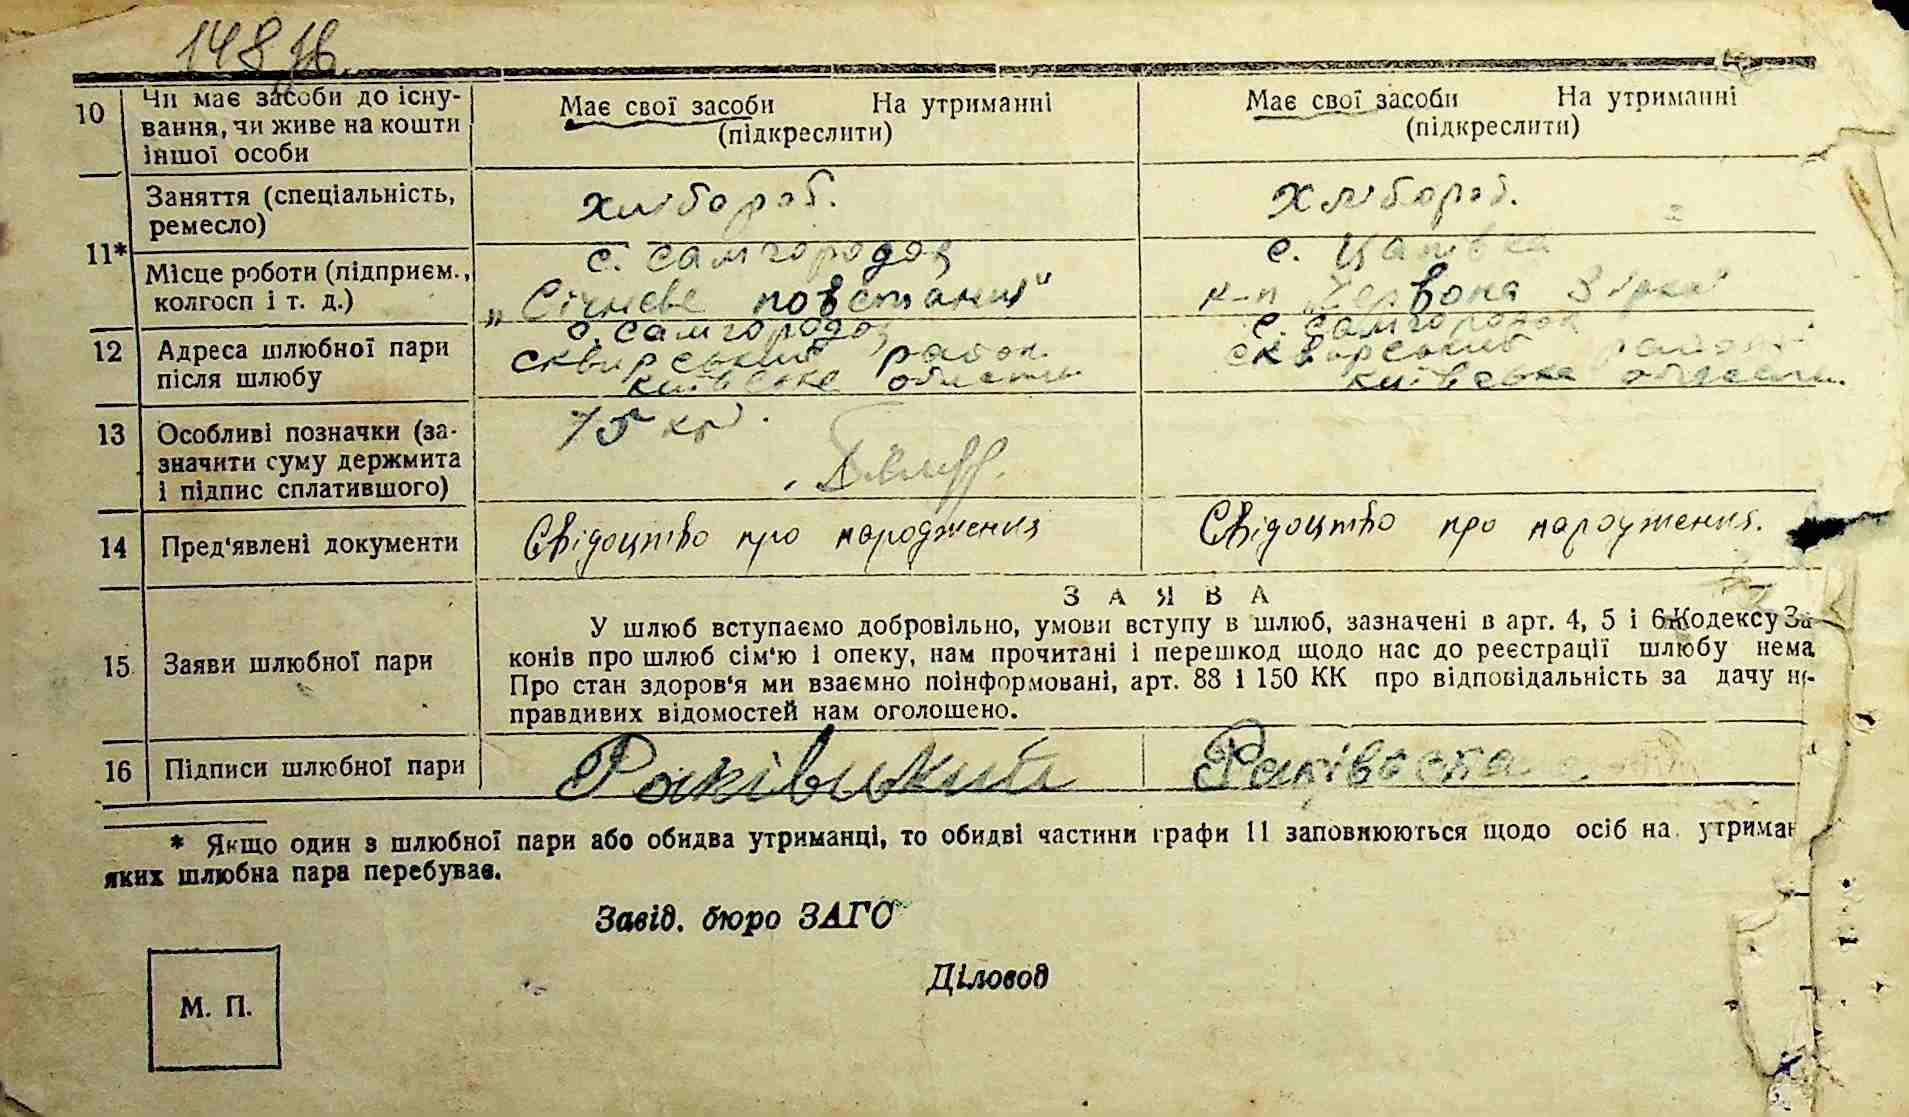 148
10 Чи має засоби до існу-
вання, чи живе на кошти
іншої особи
Має свої засоби На утриманні
(підкреслити)
Має свої засоби На утриманні
(підкреслити)
11* Заняття (спеціальність,
ремесло)
хлібороб.
Хлібороб.
Місце роботи (підприєм.,
колгосп і т. д.)
с. Самгородок
„Січневе повстання"
с. Цапівка
к-п „Червона Зірка"
12 Адреса шлюбної пари
після шлюбу
с. Самгородок
Сквирський район
Київське область
с. Самгородок
Сквирський район
Київська область.
13 Особливі позначки (за-
значити суму держмита
і підпис сплатившого)
15 кр.
14 Пред'явлені документи
Свідоцтво про народження
Свідоцтво про народження.
15 Заяви шлюбної пари
ЗАЯВА
У шлюб вступаємо добровільно, умови вступу в шлюб, зазначені в арт. 4, 5 і 6 Кодексу За
конів про шлюб сім'ю і опеку, нам прочитані і перешкод щодо нас до реєстрації шлюбу нема
Про стан здоров'я ми взаємно поінформовані, арт. 88 і 150 КК про відповідальність за дачу не-
правдивих відомостей нам оголошено.
16 Підписи шлюбної пари
* Якщо один з шлюбної пари або обидва утриманці, то обидві частини графи 11 заповнюються щодо осіб на утриман
яких шлюбна пара перебуває.
Завід. бюро ЗАГС
Діловод
М. П.